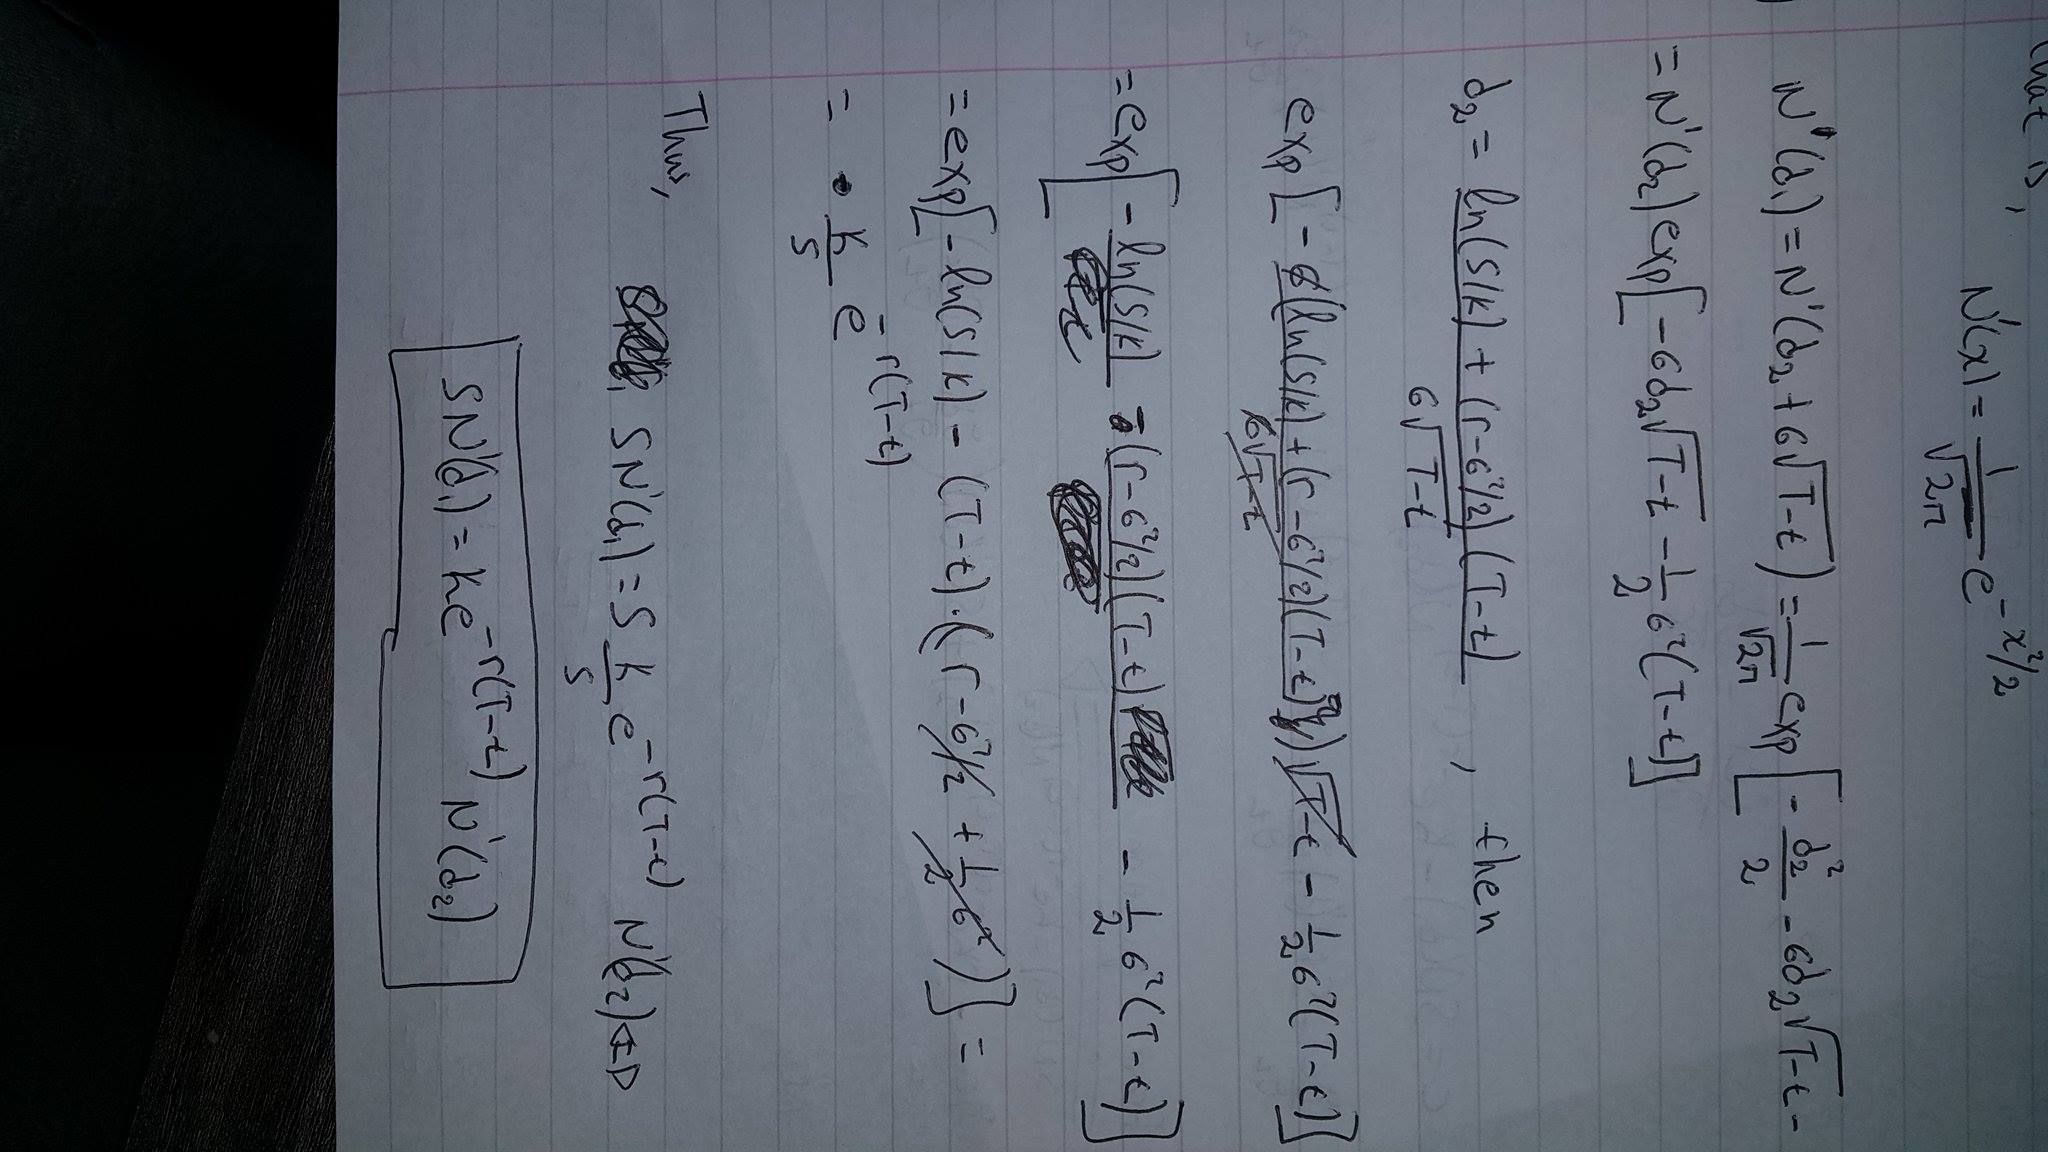 that is,
N'(x) = 1/√2π e^(-x²/2)
N'(d₁) = N'(d₂ + σ√T-t) = 1/√2π exp[ - d₂²/2 - σd₂√T-t -
= N'(d₂) exp[ -σd₂√T-t - 1/2 σ²(T-t)]
d₂ = ln(S/K) + (r-σ²/2)(T-t) / σ√T-t , then
exp[ - σ(ln(S/K) + (r-σ²/2)(T-t))√T-t / σ√T-t - 1/2 σ²(T-t)]
= exp[ - ln(S/K) - (r-σ²/2)(T-t) - 1/2 σ²(T-t)]
= exp[ - ln(S/K) - (T-t)·(r-σ²/2 + 1/2 σ²)] =
= K/S e^-r(T-t)
Thus,
SN'(d₁) = S K/S e^-r(T-t) N'(d₂) <=>
SN'(d₁) = Ke^-r(T-t) N'(d₂)